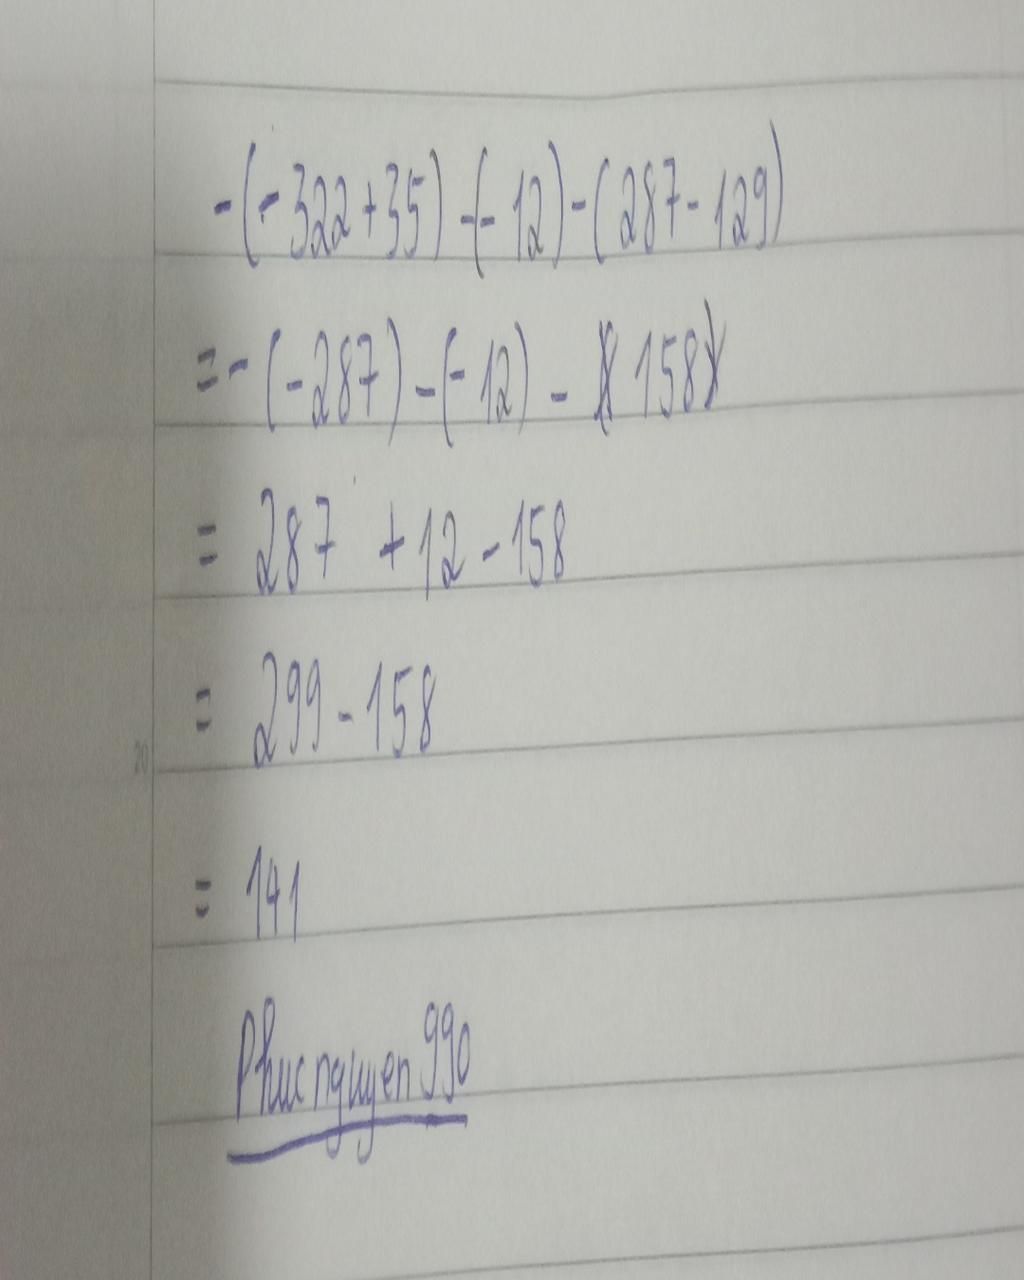 -(-322+35)-(-12)-(287-129)
=-(-287)-(-12)-158
= 287 +12-158
= 299-158
= 141
Phucnguyen990
20